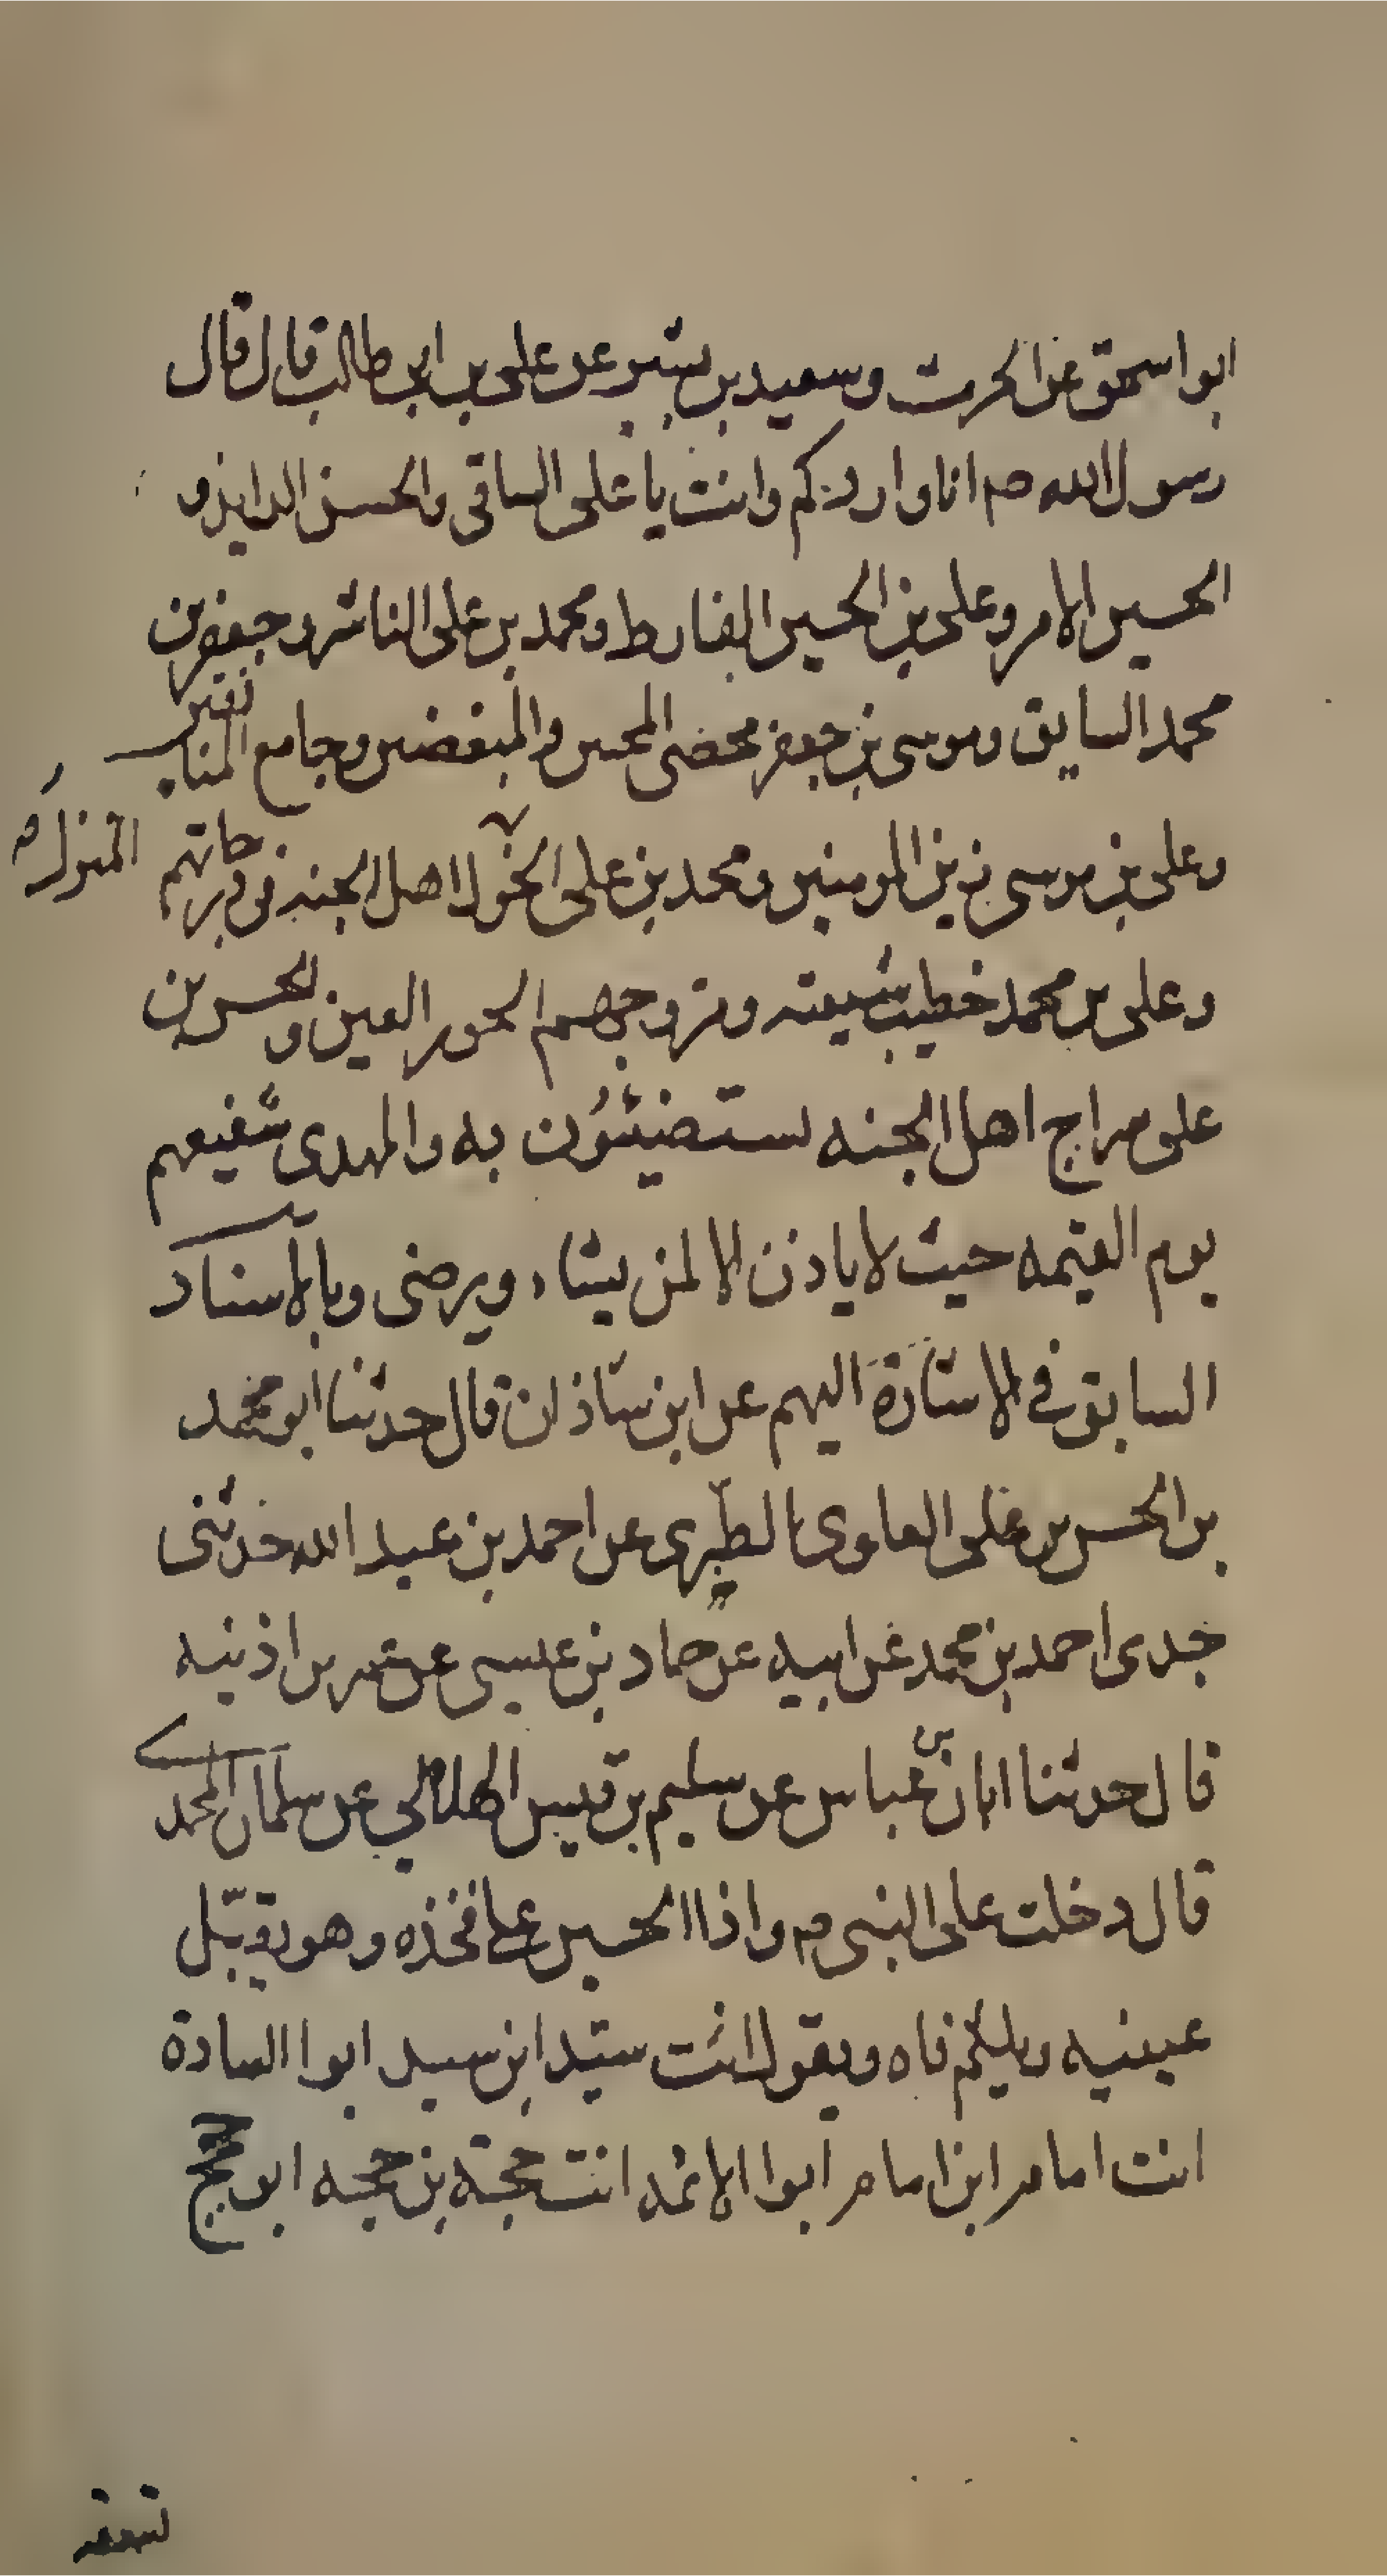 ابوا اسحق عن الحرث وسعيد بن بشير عن على بن ابى طالب قال قال
رسول الله صم انا واردكم وانت يا على الساقى والحسن الذايد و
الحسين الامر وعلى بن الحسين الفارط ومحمد بن على الناشر وجعفر بن
محمد السايق وموسى بن جعفر محصى المحبين والمبغضين وجامع المنا
فقين
وعلى بن موسى مزين المومنين ومحمد بن على اهل الجنه فى درجاتهم
المنزل
وعلى بن محمد خطيب شيعته ومزوجهم الحور العين والحسن بن
على سراج اهل الجنه يستضيئون به والمهدى شفيعهم
يوم القيمه حيث لا ياذن الا لمن يشاء ويرضى وبالاسناد
السابق فى الاشارة اليهم عن ابن شاذان قال حدثنا ابو محمد
بن الحسن بن على العلوى الطبرى عن احمد بن عبد الله حدثنى
جدى احمد بن محمد عن ابيه عن حماد بن عيسى عن عمر بن اذنيه
قال حدثنا ابان بن عباس عن سليم بن قيس الهلالي عن سلمان المحمدي
قال دخلت على النبى صم واذا الحسين على فخذه وهو يقبّل
عينيه ويلثم فاه ويقول انت سيّد ابن سيد ابوا السادة
انت امام ابن امام ابوا الائمه انت حجة بن حجه ابو حجج
تسعه